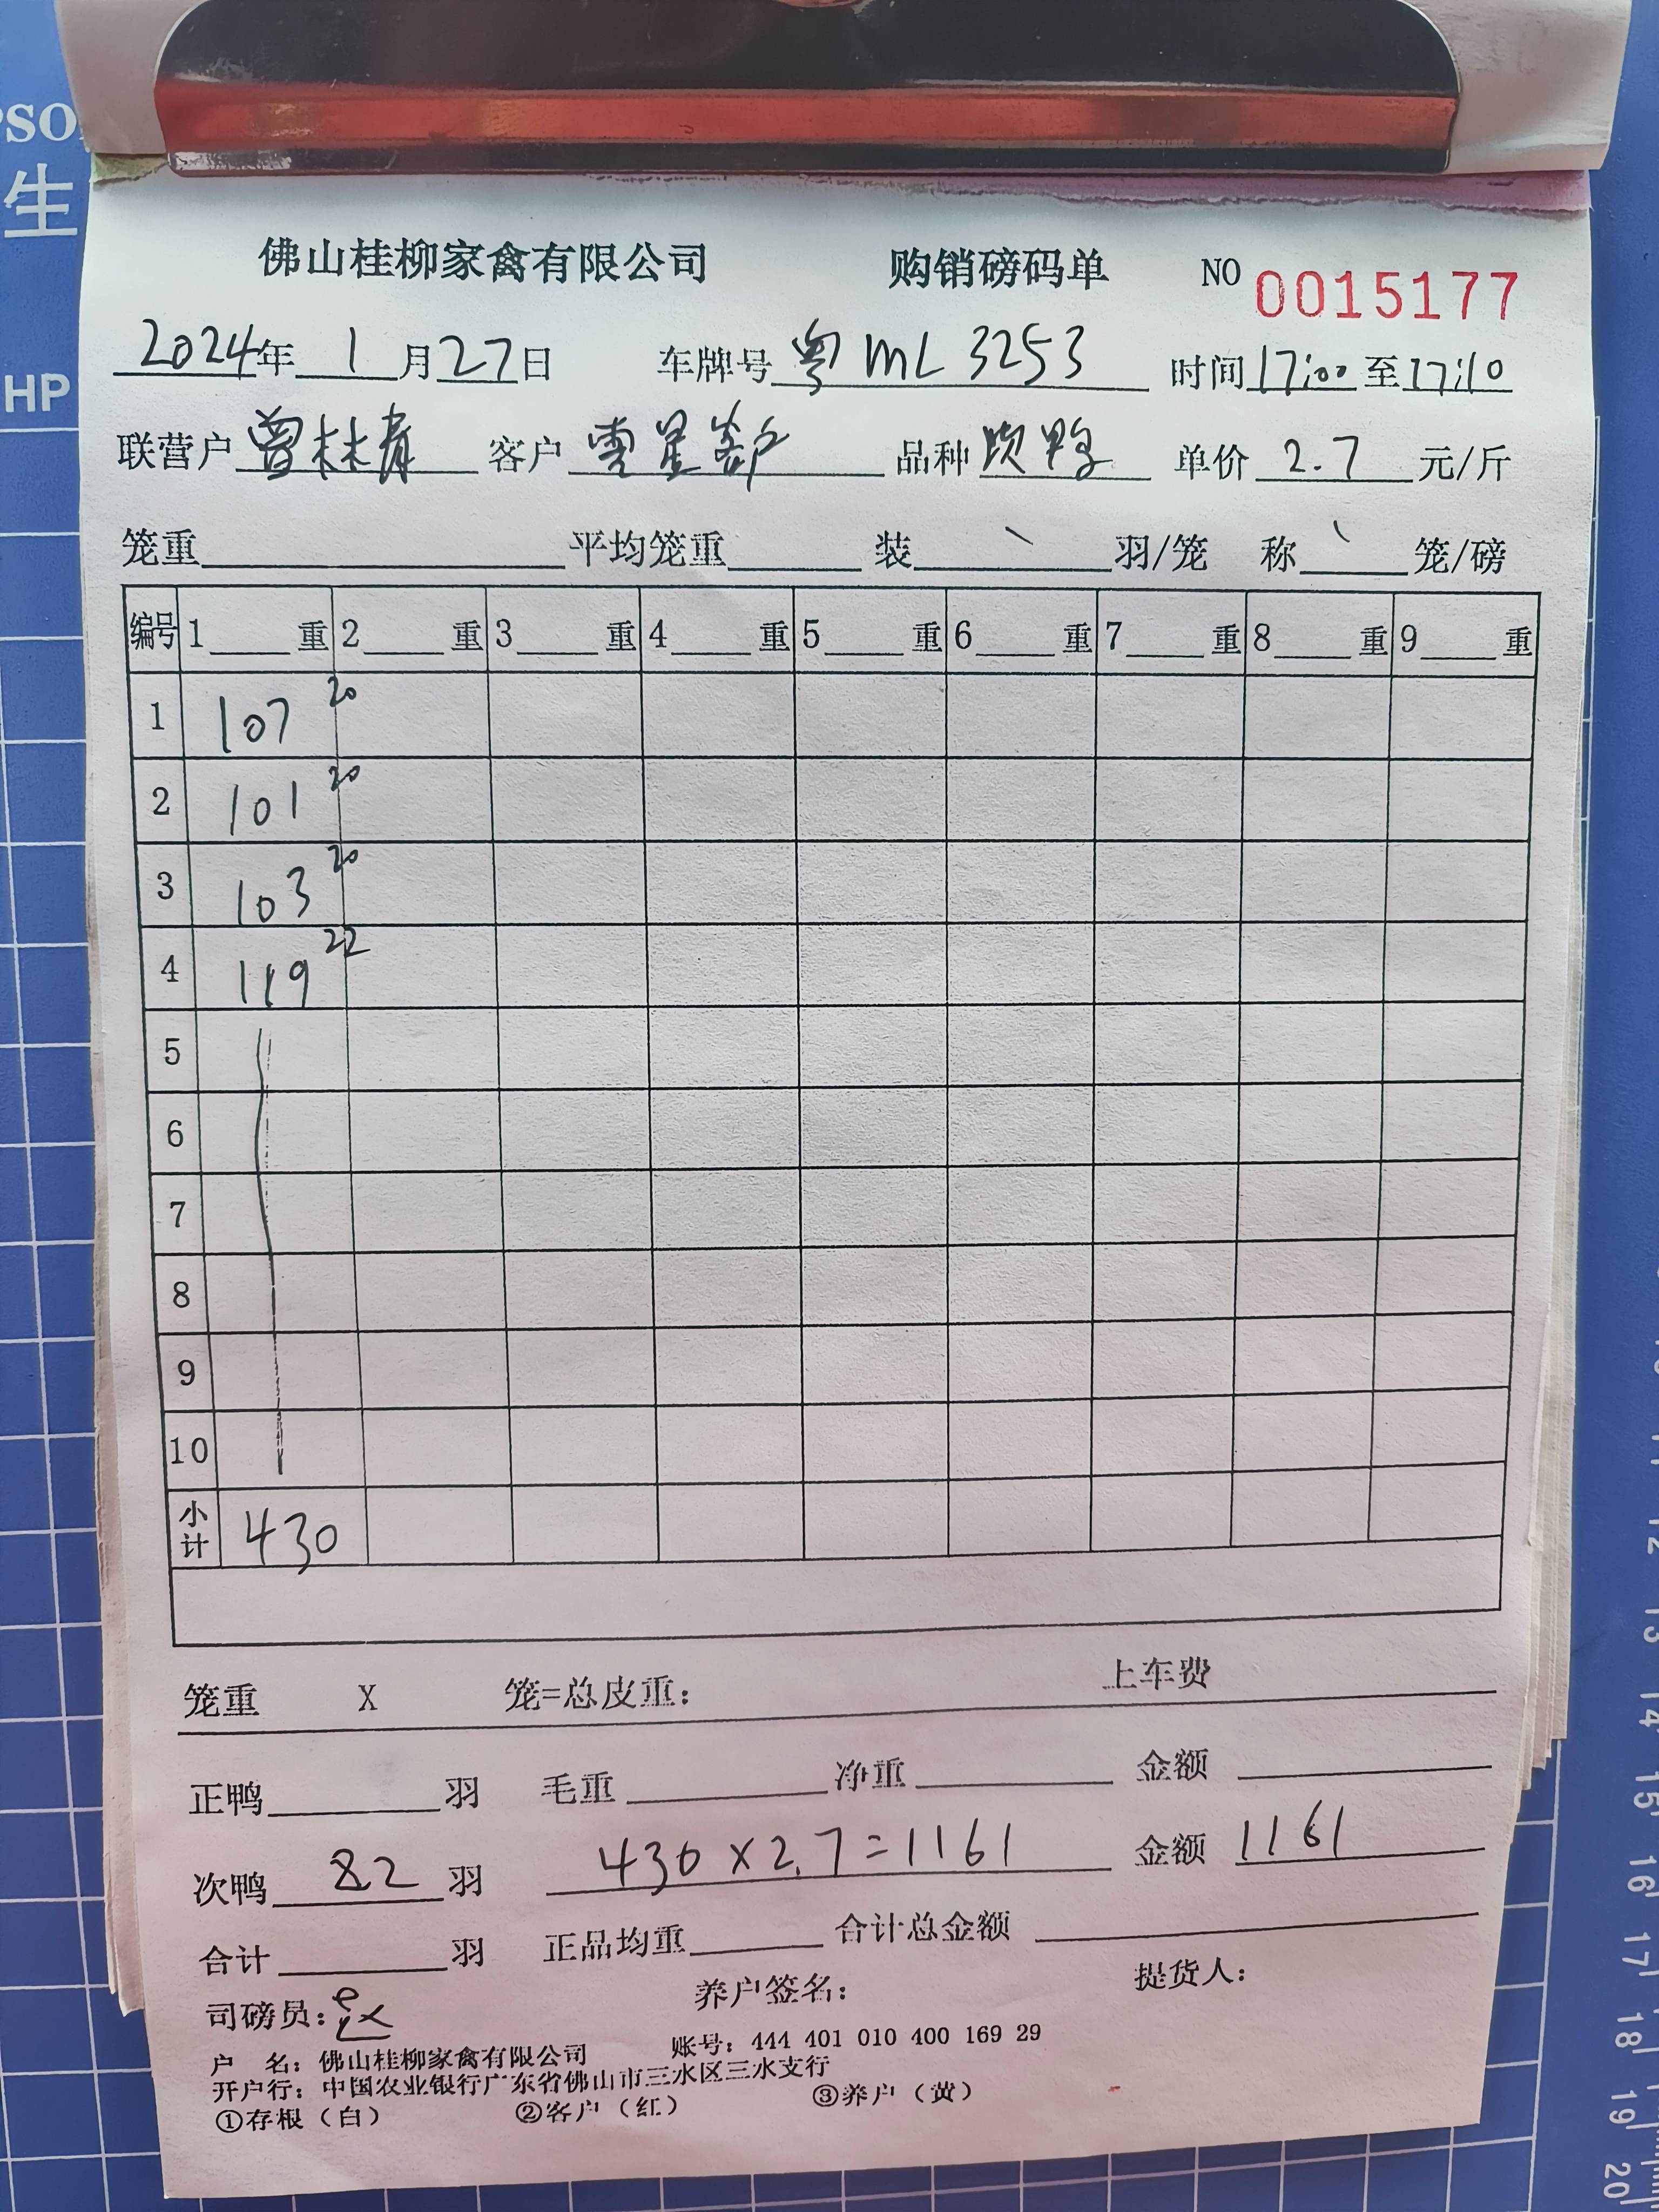 生
HP
佛山桂柳家禽有限公司 购销磅码单 NO 0015177
2024年 1 月 27 日 车牌号 粤ML3253 时间 17:00 至 17:10
联营户 曾林青 客户 零星客户 品种 次鸭 单价 2.7 元/斤
笼重 平均笼重 装 \ 羽/笼 称 \ 笼/磅
编号 1 重 2 重 3 重 4 重 5 重 6 重 7 重 8 重 9 重
1 107 20
2 101 20
3 103 20
4 119 22
5
6
7
8
9
10
小计 430
笼重 X 笼=总皮重: 上车费
正鸭 羽 毛重 净重 金额
次鸭 82 羽 430×2.7=1161 金额 1161
合计 羽 正品均重 合计总金额
司磅员: 养户签名: 提货人:
户 名: 佛山桂柳家禽有限公司 账号: 444 401 010 400 169 29
开户行: 中国农业银行广东省佛山市三水区三水支行
①存根（白） ②客户（红） ③养户（黄）
12
13
14
15
16
17
18
19
20